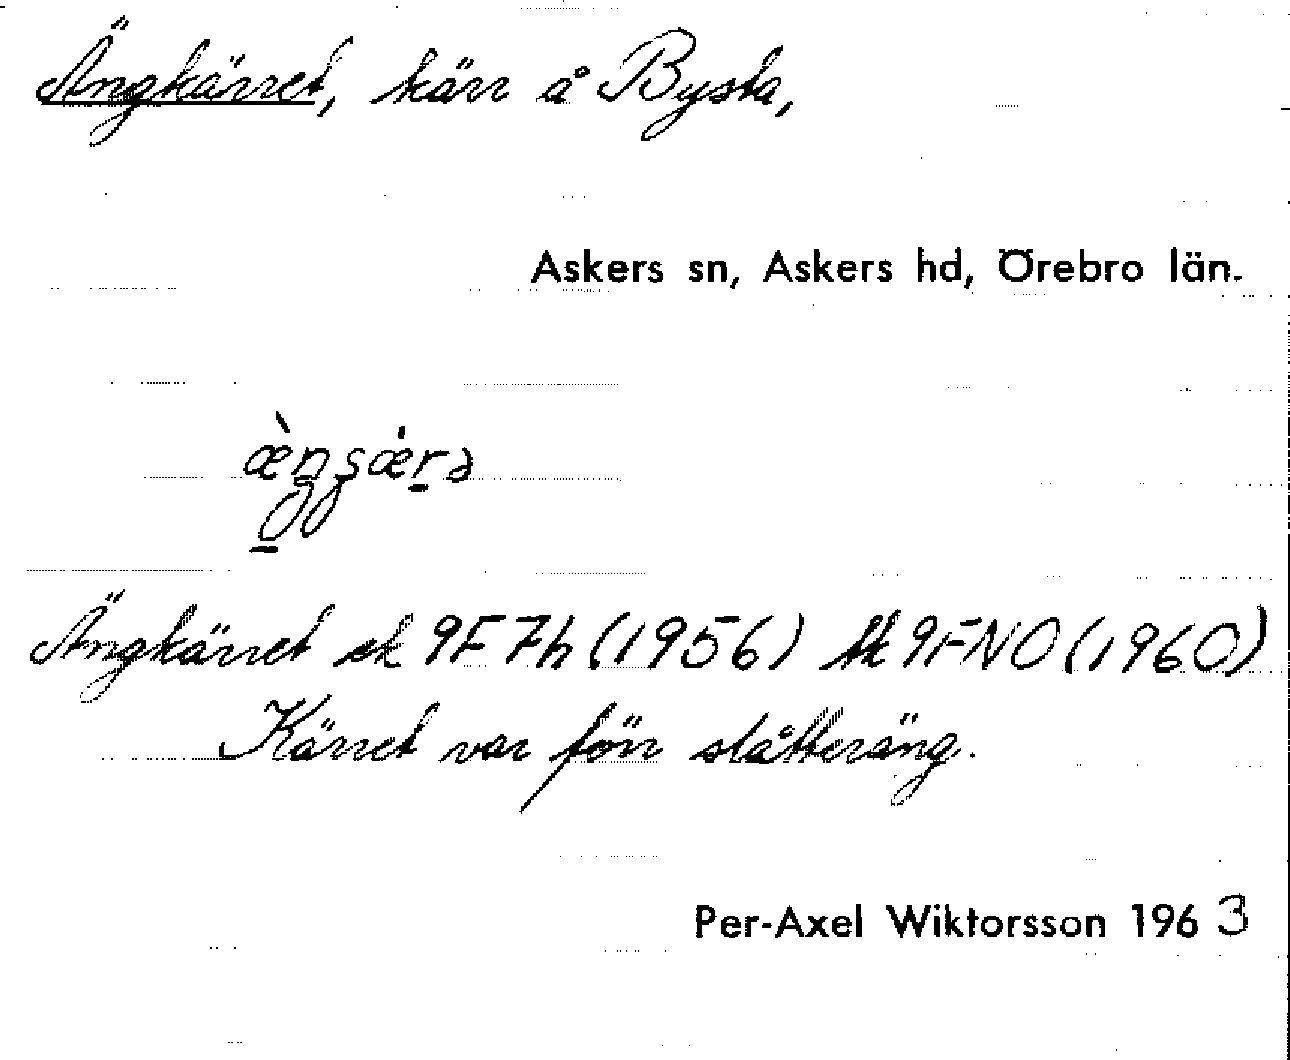 Ängkärret, kärr å Bysta,
Askers sn, Askers hd, Örebro län.
Ängkärret ek 9F7h (1956) tk 9FNO (1960)
Kärret var förr slåtteräng.
Per-Axel Wiktorsson 1963